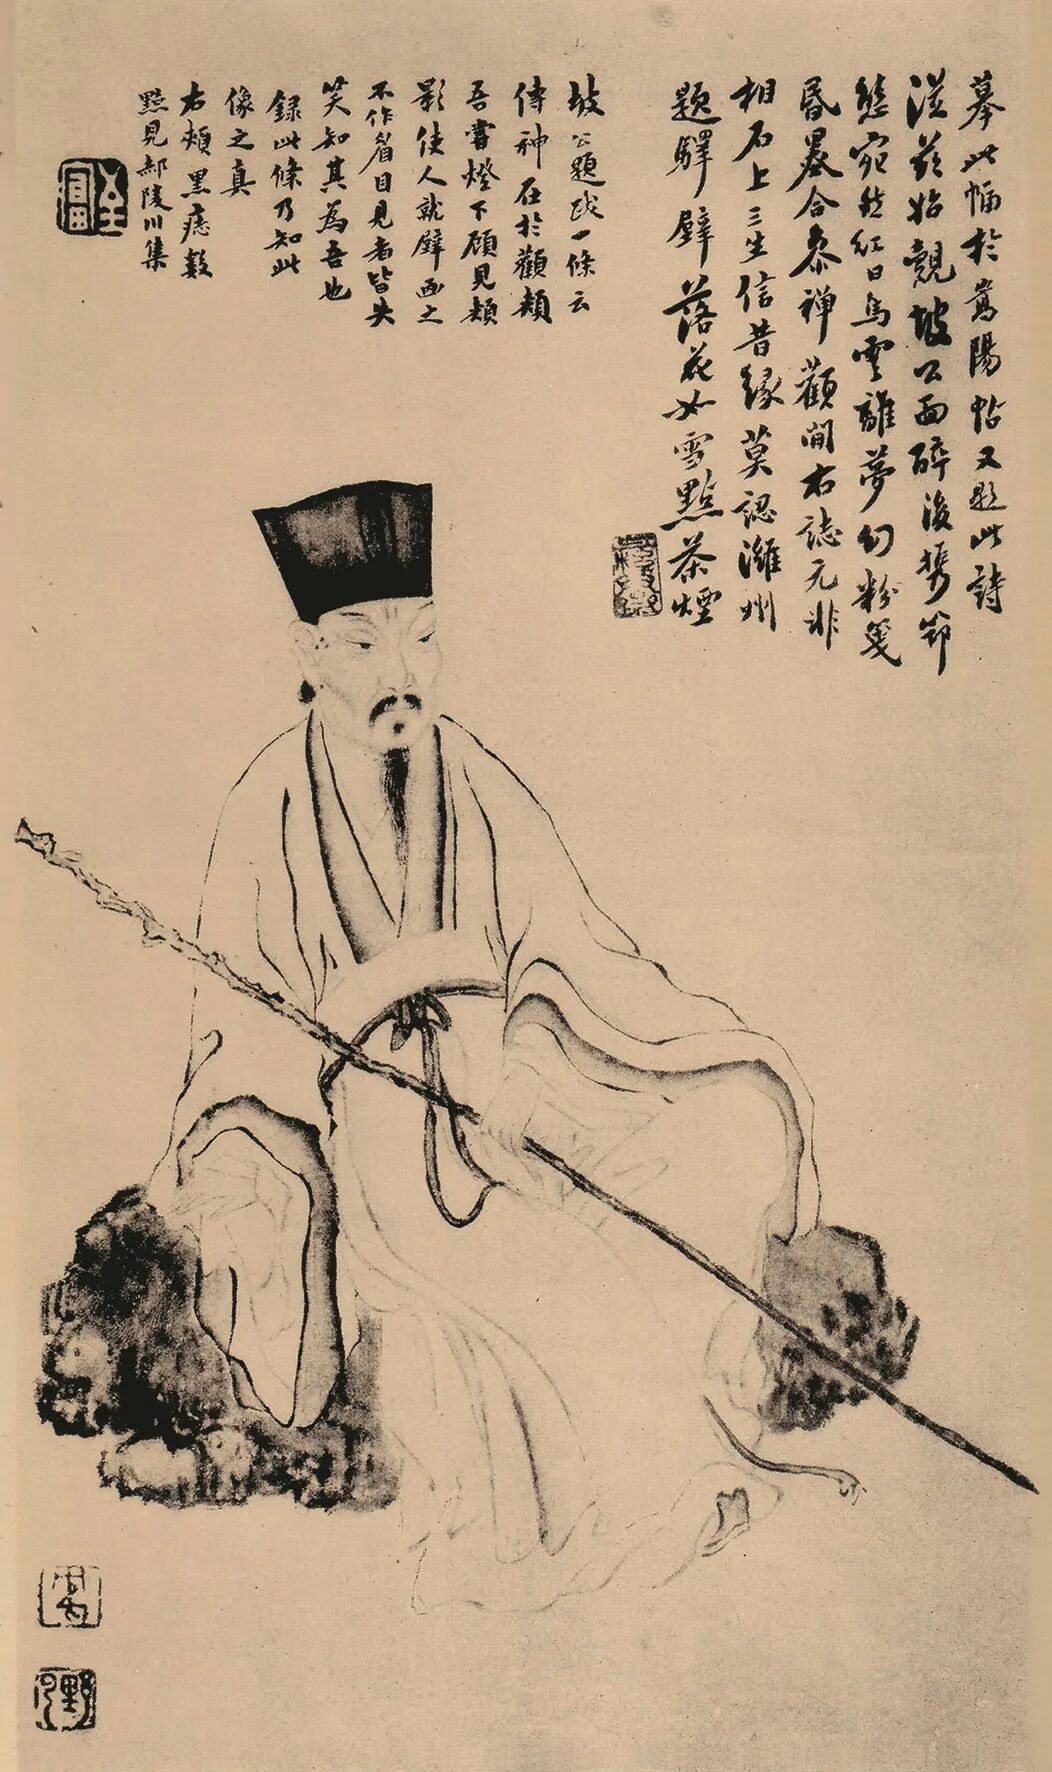 摹此幅於嵩陽帖又題此詩
從茲始覿坡公面醉後攜筇
態宛然紅日烏雲離夢幻粉箋
昬墨合參禪顴間右誌元非
相石上三生信昔緣莫認濰州
題驛壁落花如雪點茶煙
坡公題跋一條云
傳神在於顴頰
吾嘗燈下顧見頰
影使人就壁画之
不作眉目見者皆失
笑知其為吾也
録此條乃知此
像之真
右頰黑痣數
點見郝陵川集